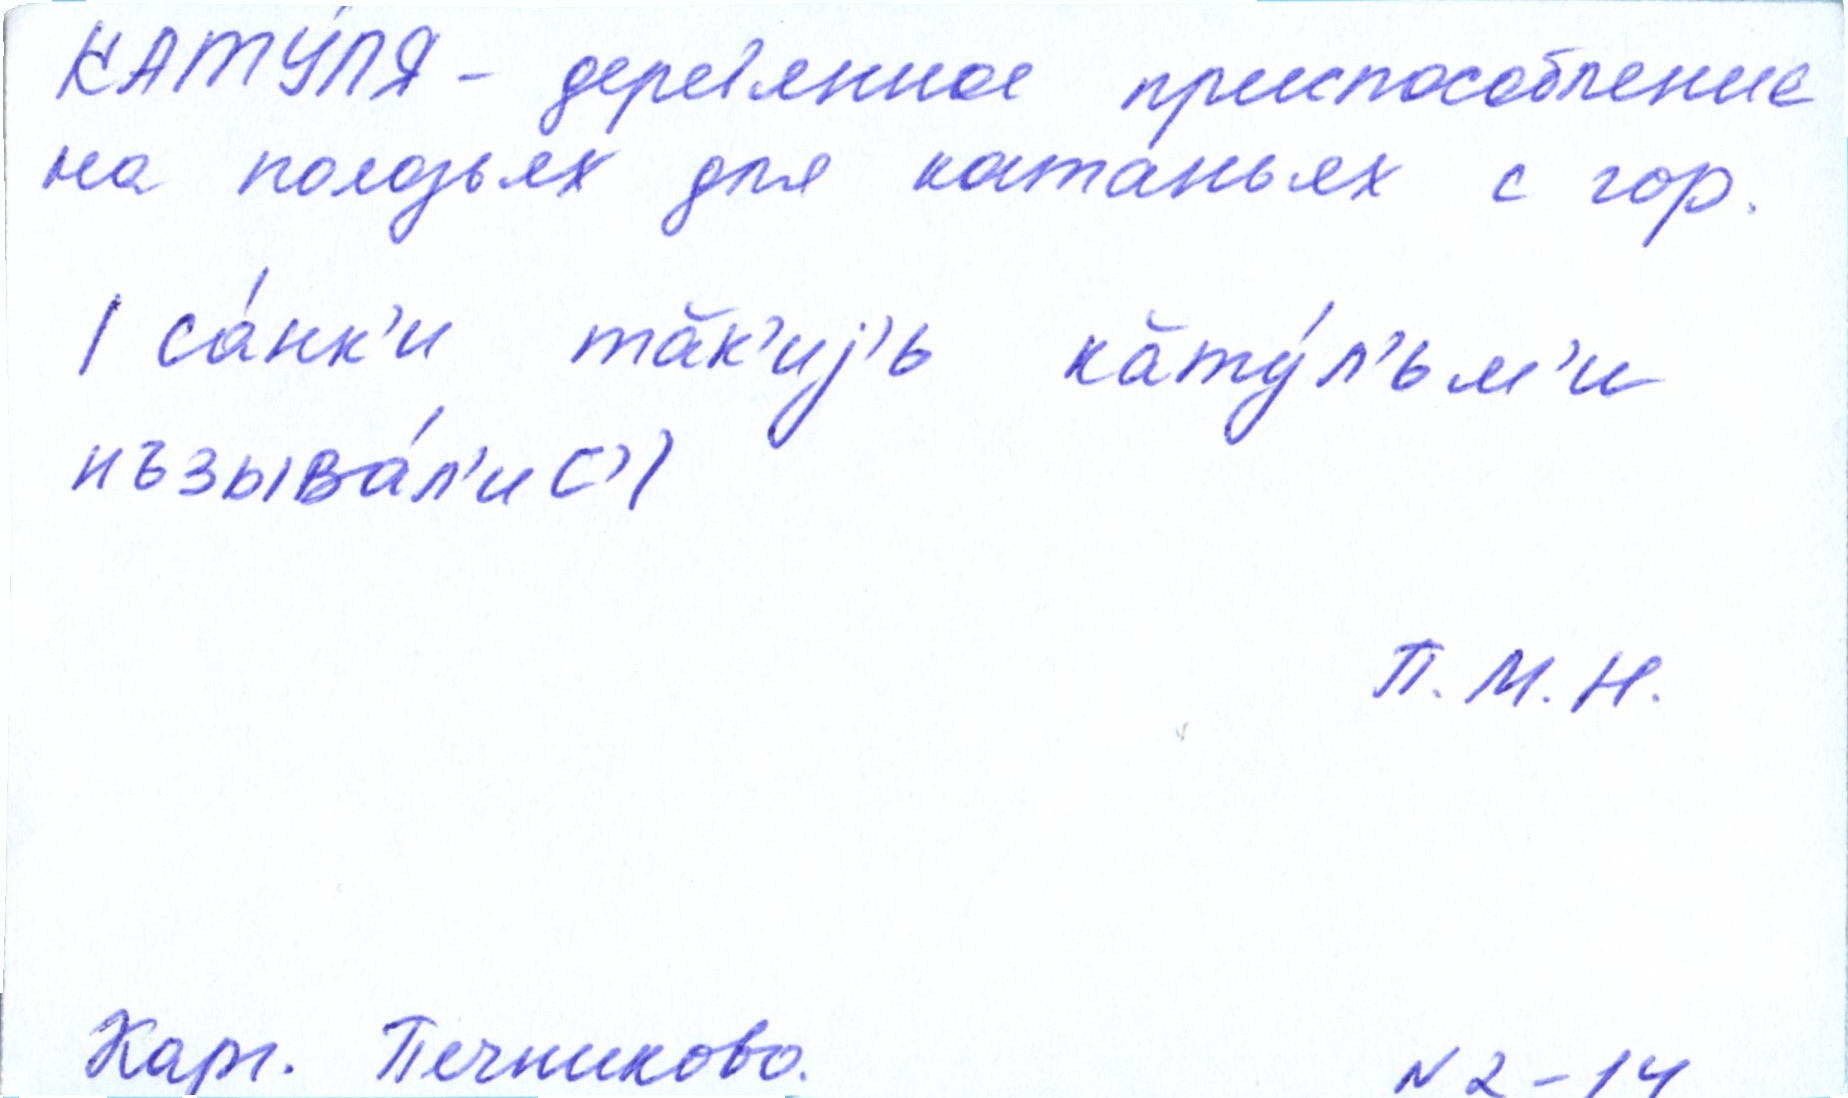 КАТУ́ЛЯ - деревянное приспособление
на полозьях для ката́ньях с гор.
| са́нк'и тӑк'иj'ь кӑту́л'ьм'и
нъзыва́л'ис' |
П. М. Н.
Карг. Печниково.
N 2-14